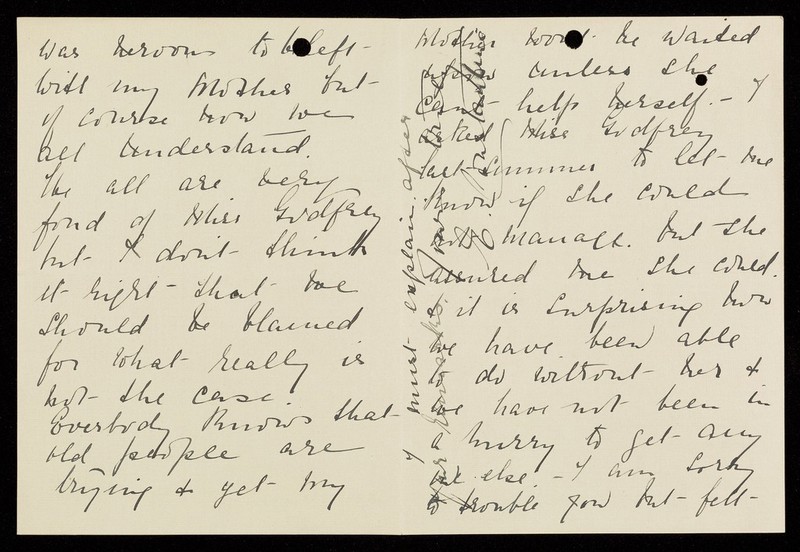 was nervous to be left
with my Mother but
of course now we
all understand.
We all are very
fond of Miss Godfrey
but I don't think
it right that we
should be blamed
for what really is
not the case.
Everybody knows that
old people are
trying & yet my
Mother won't be waited
unless she
can't help herself. - I
asked Miss Godfrey
last summer to let me
know if she could
not manage. but she
assured me she could.
it is surprising how
we have been able
to do without her &
we have not been in
a hurry to get any
one else. - I am sorry
to trouble you but felt
I must explain after
your remarks.